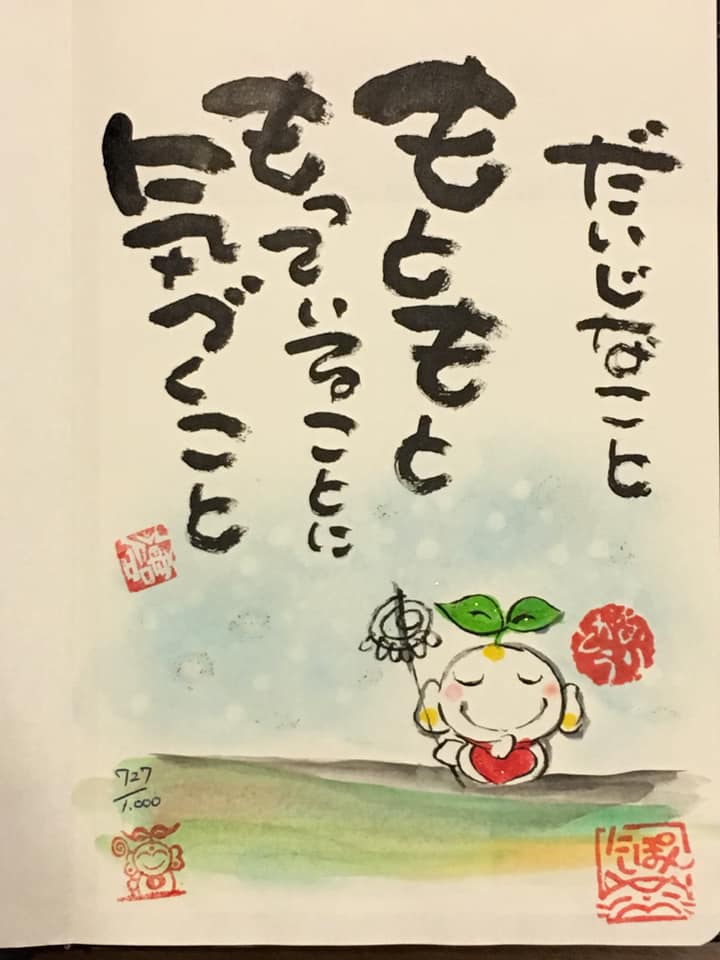 だいじなこと
もともと
もっていることに
気づくこと
727/1.000
にっぽん
ありがとう